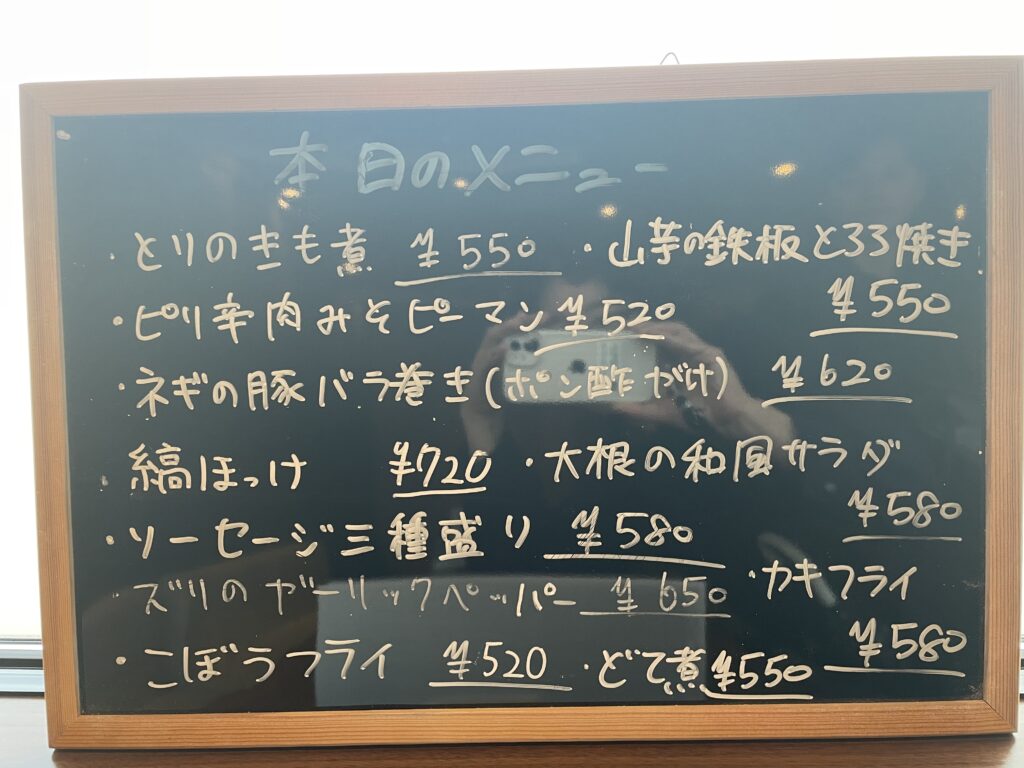 本日のメニュー
・とりのきも煮 ¥550
・山芋の鉄板とろろ焼き
¥550
・ピリ辛肉みそピーマン ¥520
・ネギの豚バラ巻き(ポン酢がけ) ¥620
縞ほっけ ¥720
・大根の和風サラダ
¥580
・ソーセージ三種盛り ¥580
・ズリのガーリックペッパー ¥650
・カキフライ
¥580
・こぼうフライ ¥520
・どて煮 ¥550